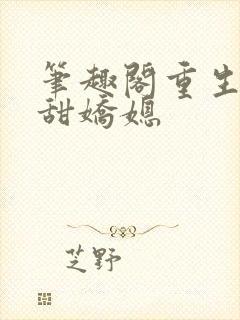 筆趣閣重生
甜嬌媳
芝野